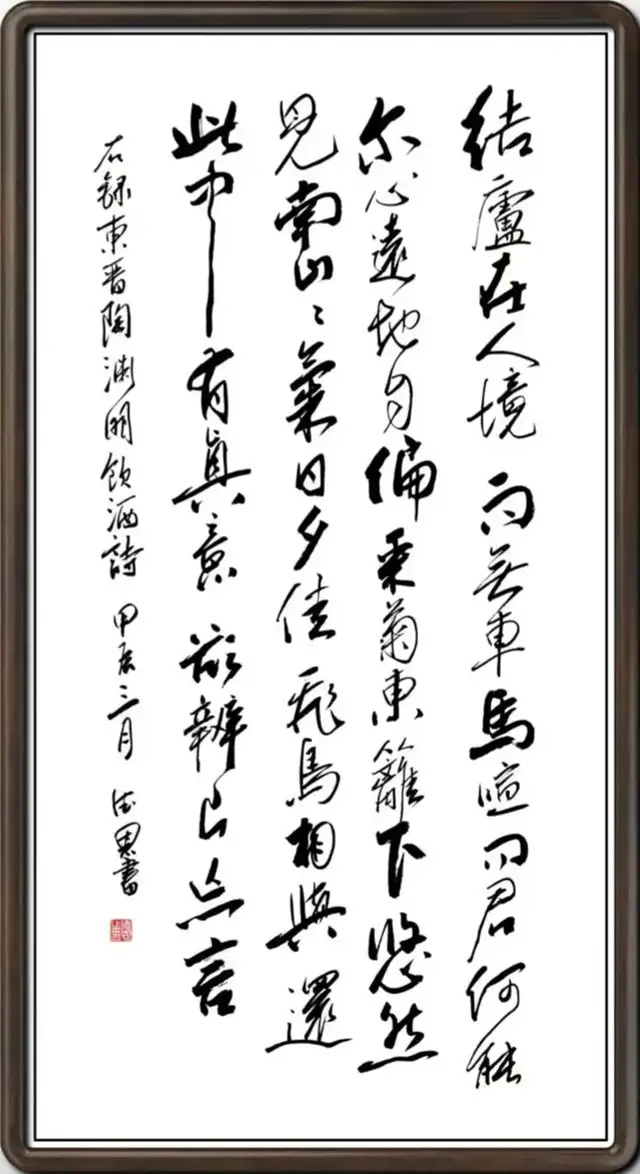 結廬在人境而無車馬喧問君何能
尔心遠地自偏采菊東籬下悠然
見南山山氣日夕佳飛鳥相與還
此中有真意欲辨已忘言
右録東晋陶淵明飲酒詩 甲辰三月 書